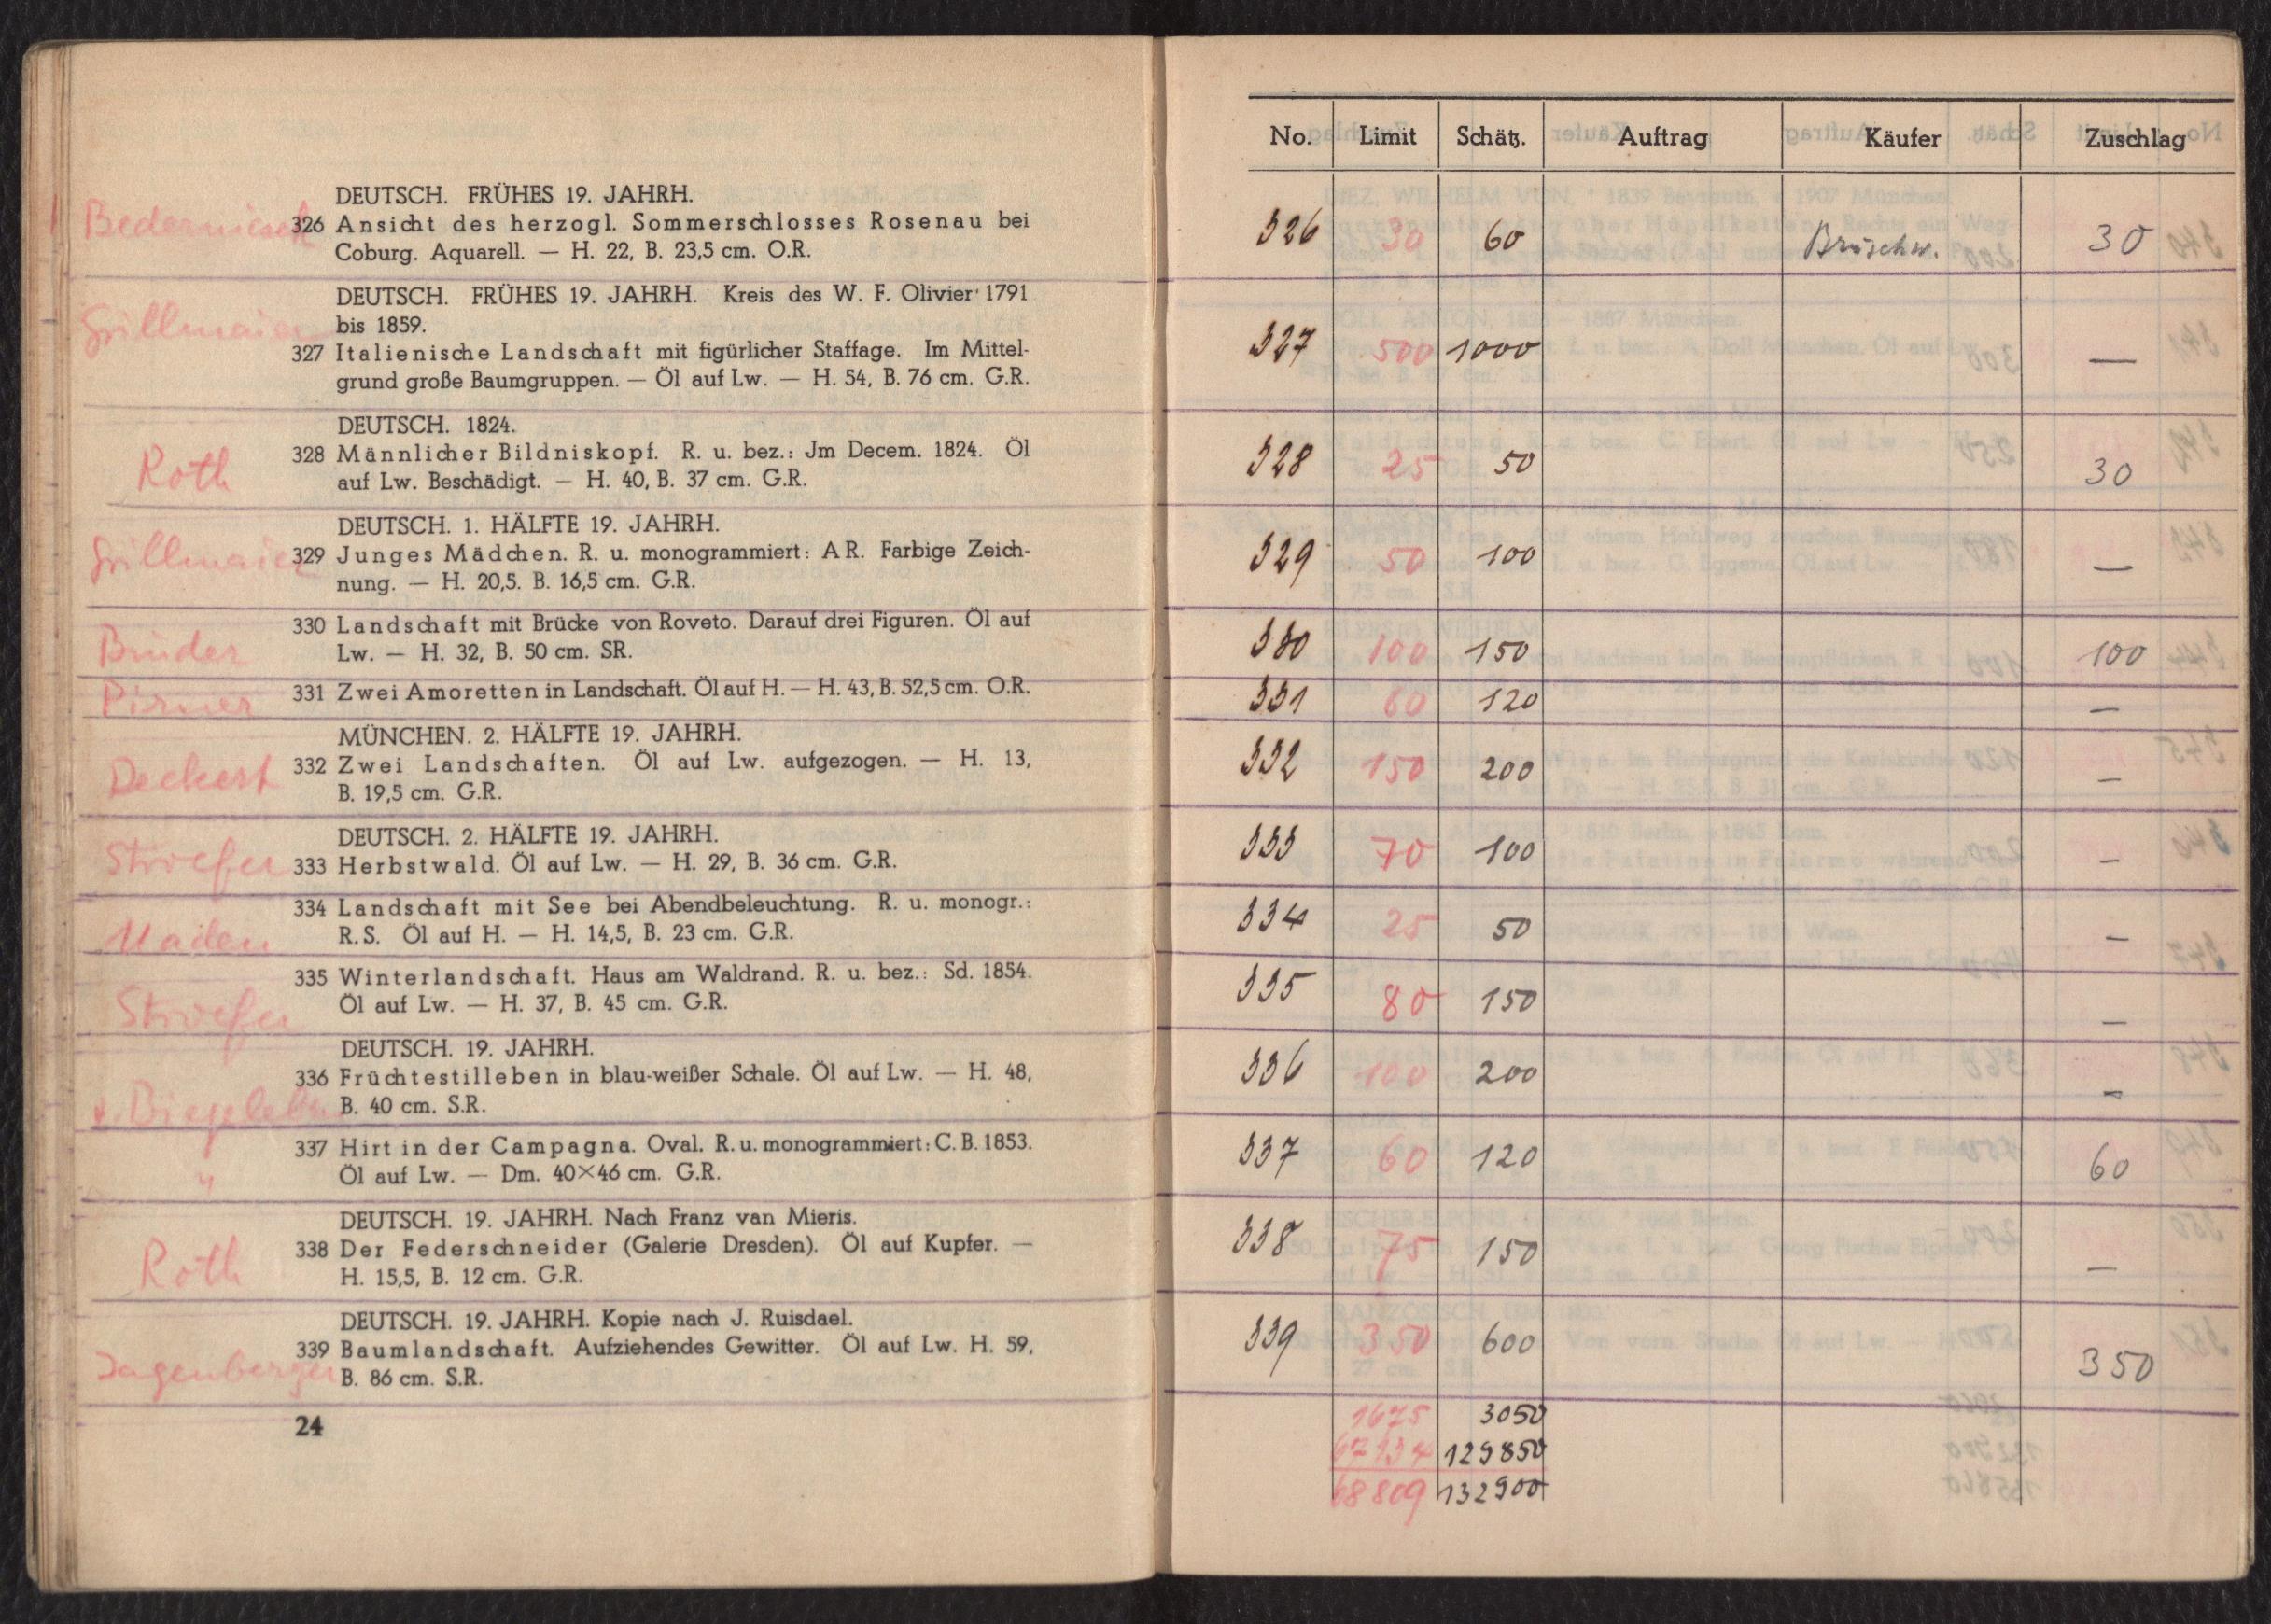 DEUTSCH. FRÜHES 19. JAHRH.
326 Ansicht des herzogl. Sommerschlosses Rosenau bei
Coburg. Aquarell. — H. 22, B. 23,5 cm. O.R.
Grillmaier
DEUTSCH. FRÜHES 19. JAHRH. Kreis des W. F. Olivier 1791
bis 1859.
327 Italienische Landschaft mit figürlicher Staffage. Im Mittel-
grund große Baumgruppen. — Öl auf Lw. — H. 54, B. 76 cm. G.R.
Roth
DEUTSCH. 1824.
328 Männlicher Bildniskopf. R. u. bez.: Jm Decem. 1824. Öl
auf Lw. Beschädigt. — H. 40, B. 37 cm. G.R.
Grillmaier
DEUTSCH. 1. HÄLFTE 19. JAHRH.
329 Junges Mädchen. R. u. monogrammiert: AR. Farbige Zeich-
nung. — H. 20,5. B. 16,5 cm. G.R.
Binder
330 Landschaft mit Brücke von Roveto. Darauf drei Figuren. Öl auf
Lw. — H. 32, B. 50 cm. SR.
Pirner
331 Zwei Amoretten in Landschaft. Öl auf H. — H. 43, B. 52,5 cm. O.R.
Deckert
MÜNCHEN. 2. HÄLFTE 19. JAHRH.
332 Zwei Landschaften. Öl auf Lw. aufgezogen. — H. 13,
B. 19,5 cm. G.R.
Stroefer
DEUTSCH. 2. HÄLFTE 19. JAHRH.
333 Herbstwald. Öl auf Lw. — H. 29, B. 36 cm. G.R.
334 Landschaft mit See bei Abendbeleuchtung. R. u. monogr.:
R.S. Öl auf H. — H. 14,5, B. 23 cm. G.R.
Stroefer
335 Winterlandschaft. Haus am Waldrand. R. u. bez.: Sd. 1854.
Öl auf Lw. — H. 37, B. 45 cm. G.R.
v. Biegeleben
DEUTSCH. 19. JAHRH.
336 Früchtestilleben in blau-weißer Schale. Öl auf Lw. — H. 48,
B. 40 cm. S.R.
"
337 Hirt in der Campagna. Oval. R. u. monogrammiert: C. B. 1853.
Öl auf Lw. — Dm. 40×46 cm. G.R.
Roth
DEUTSCH. 19. JAHRH. Nach Franz van Mieris.
338 Der Federschneider (Galerie Dresden). Öl auf Kupfer. —
H. 15,5, B. 12 cm. G.R.
Dagenberger
DEUTSCH. 19. JAHRH. Kopie nach J. Ruisdael.
339 Baumlandschaft. Aufziehendes Gewitter. Öl auf Lw. H. 59,
B. 86 cm. S.R.
24
No. Limit Schätz. Auftrag Käufer Zuschlag
326 30 60 Brüschw. 30
327 500 1000 —
328 25 50 30
329 50 100 —
330 100 150 100
331 60 120 —
332 150 200 —
333 70 100 —
334 25 50 —
335 80 150 —
336 100 200 —
337 60 120 60
338 75 150 —
339 350 600 350
1675 3050
67134 129850
68809 132900